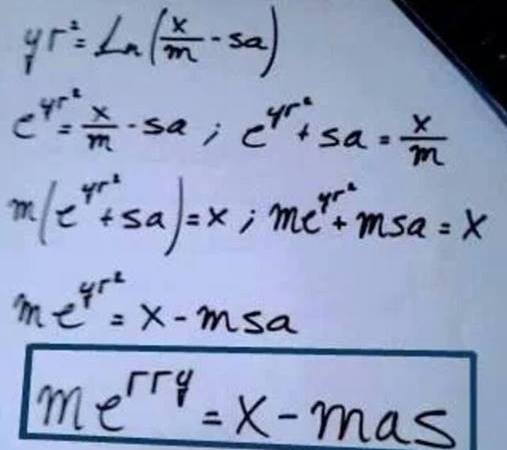 yr² = Ln(x/m - sa)
e^yr² = x/m - sa ; e^yr² + sa = x/m
m(e^yr² + sa) = x ; me^yr² + msa = x
me^yr² = x - msa
me^rry = x - mas